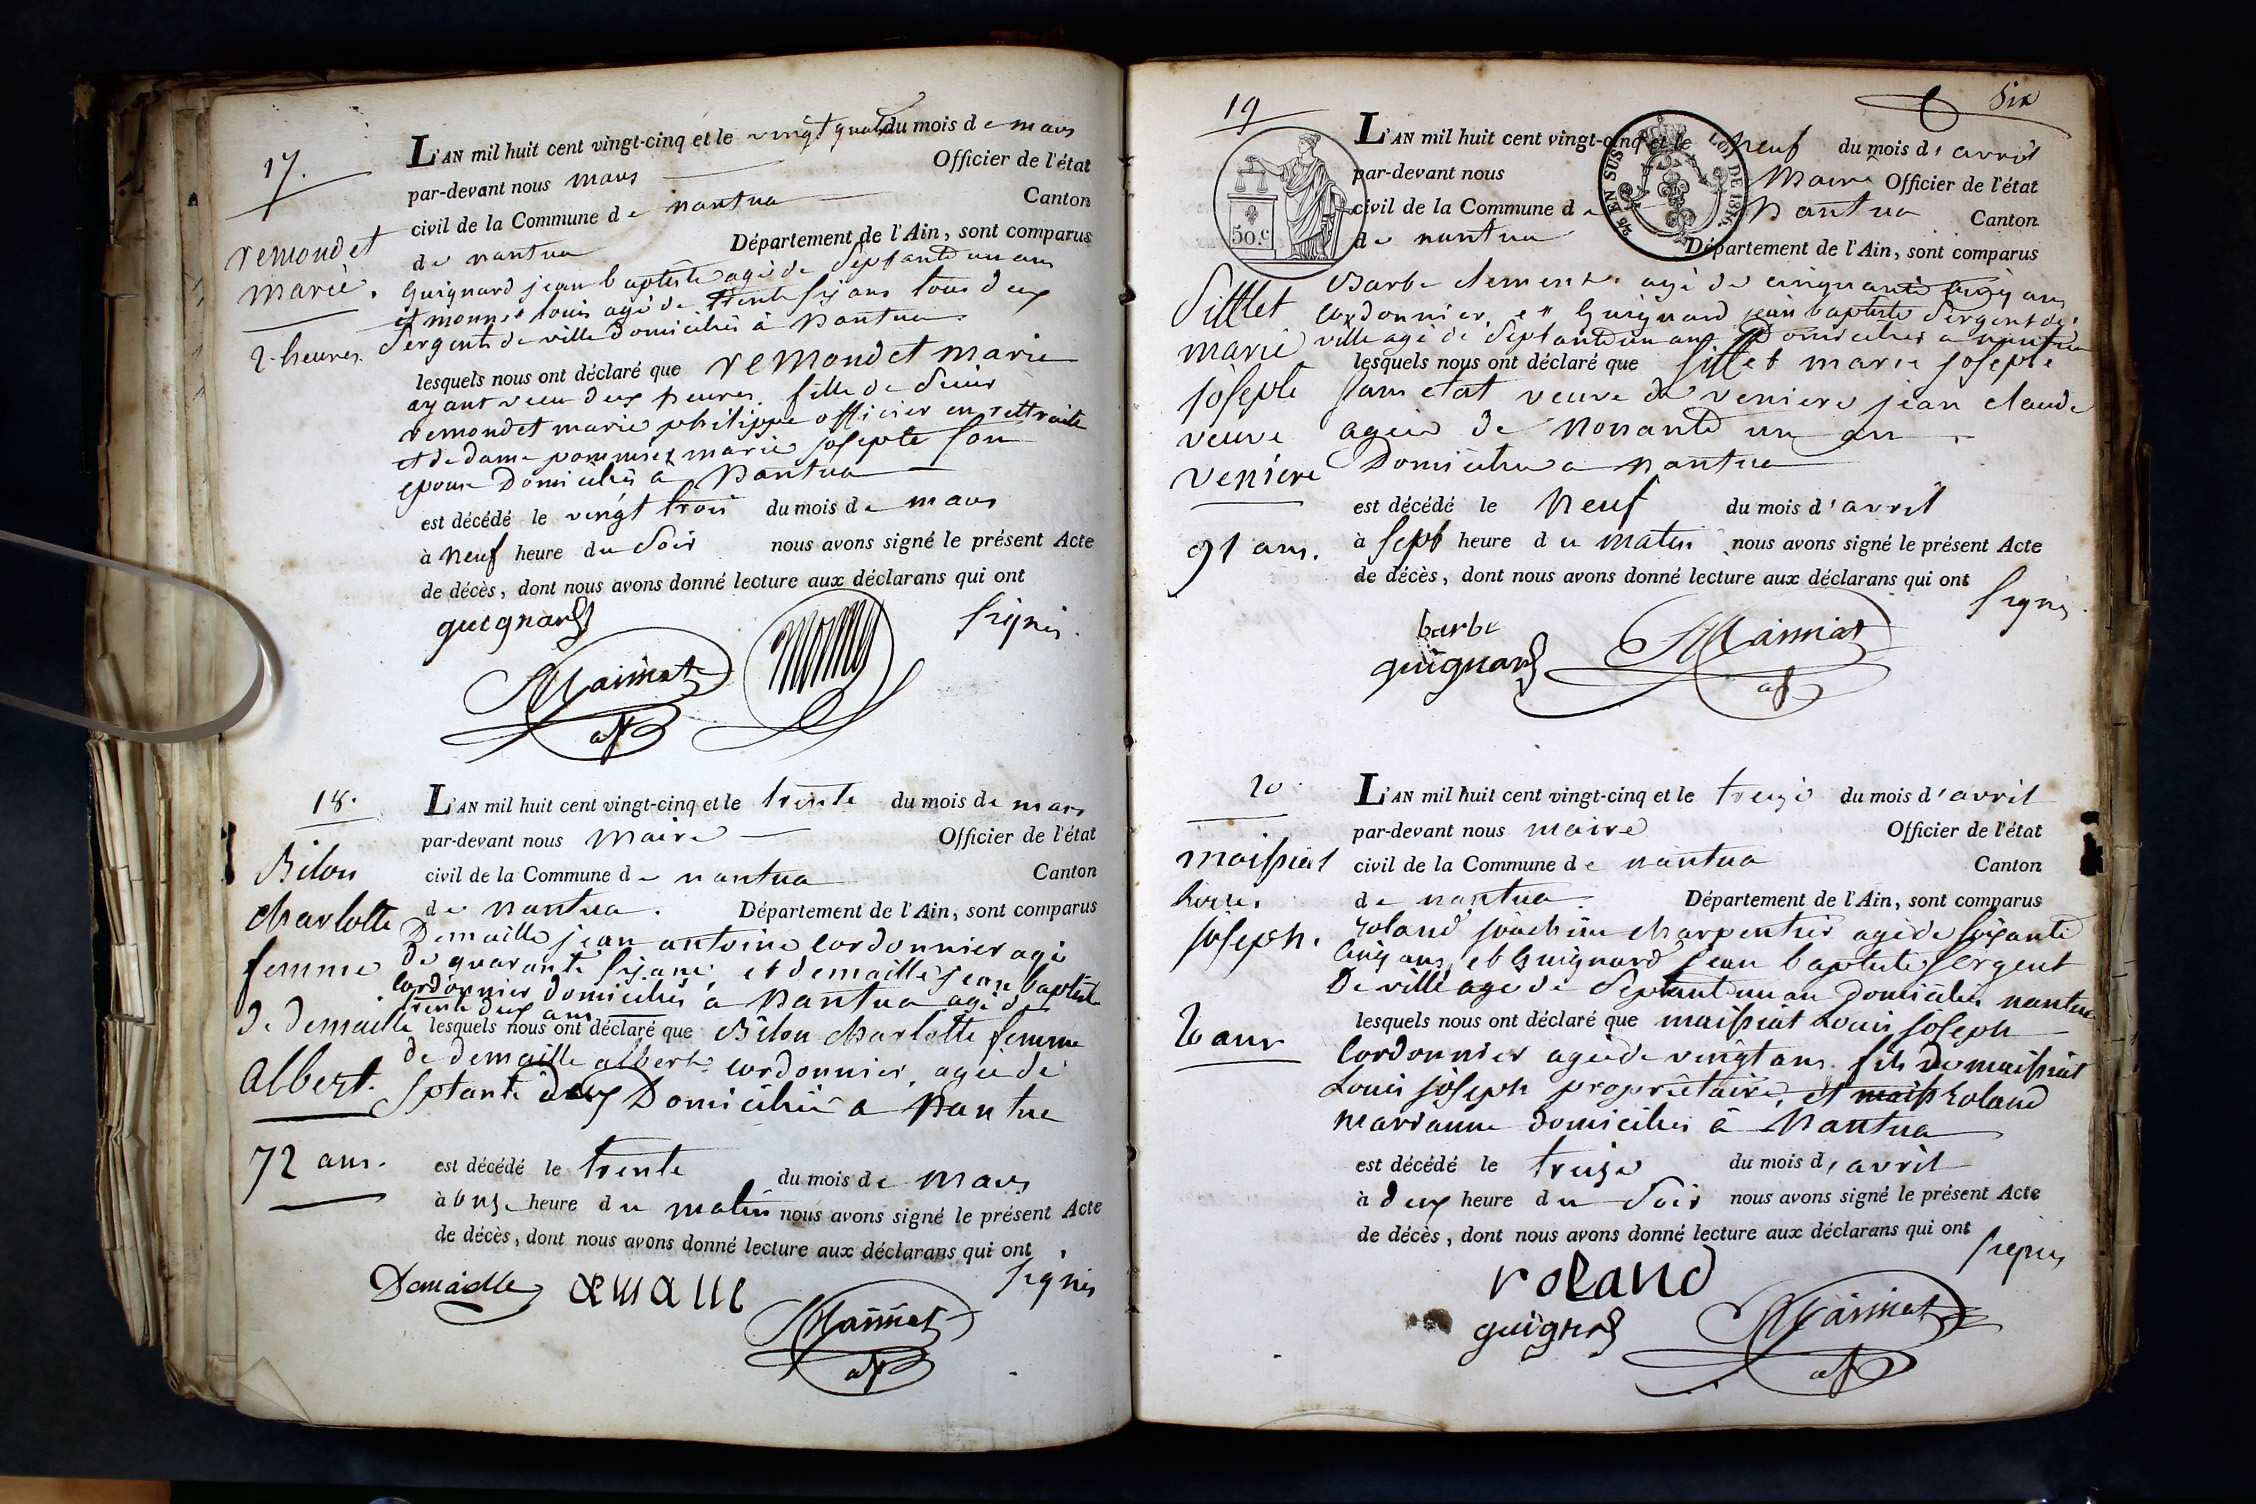 17.
remondet
marie.
2 heures.
L'AN mil huit cent vingt-cinq et le vingt quatre du mois de mars
par-devant nous mars Officier de l'état
civil de la Commune de nantua Canton
de nantua Département de l'Ain, sont comparus
Guignard jean baptiste agé de septante un ans
et monnet louis agé de trente six ans tous deux
sergents de ville domiciliés à Nantua.
lesquels nous ont déclaré que remondet marie
ayant vecu deux heures. fille de sieur
remondet marie philippe officier en rettraite
et de dame marie josepte son
epouse Domiciliés à Nantua
est décédé le vingt trois du mois de mars
à neuf heure du soir nous avons signé le présent Acte
de décès, dont nous avons donné lecture aux déclarans qui ont
signés.
guignard
18.
Bilon
charlotte
femme
de demaille
albert.
72 ans.
L'AN mil huit cent vingt-cinq et le trente du mois de mars
par-devant nous Maire Officier de l'état
civil de la Commune de nantua Canton
de nantua. Département de l'Ain, sont comparus
Demaille jean antoine cordonnier agé
de quarante six ans, et demaille jean baptiste
cordonnier domiciliés à Nantua agé de
trente deux ans
lesquels nous ont déclaré que Bilon charlotte femme
de demaille albert cordonnier, agée de
septante deux Domiciliée a Nantua
est décédé le trente du mois de mars
à onze heure du matin nous avons signé le présent Acte
de décès, dont nous avons donné lecture aux déclarans qui ont
signés
Demaille demaille
Six
19
50.c
Sillet
marie
josepte
veuve
veniere
91 ans.
L'AN mil huit cent vingt-cinq et le neuf du mois d'avril
EN SUS LOI DE 1816.
par-devant nous Maire Officier de l'état
civil de la Commune de Nantua Canton
de nantua Département de l'Ain, sont comparus
Barbe clement agé de cinquante cinq ans
cordonnier et Guignard jean baptiste sergent de
ville agé de septante un ans Domiciliés a nantua
lesquels nous ont déclaré que Sillet marie josepte
sans etat veuve de veniere jean claude
agée de Nonante un an
Domiciliée a nantua
est décédé le neuf du mois d'avril
à sept heure du matin nous avons signé le présent Acte
de décès, dont nous avons donné lecture aux déclarans qui ont
signés
barbe
guignard
20
maissiat
joseph.
20 ans
L'AN mil huit cent vingt-cinq et le treize du mois d'avril
par-devant nous maire Officier de l'état
civil de la Commune de nantua Canton
de nantua. Département de l'Ain, sont comparus
roland joachim charpentier agé de soixante
cinq ans, et Guignard jean baptiste sergent
De ville agé de septante un an domiciliés nantua
lesquels nous ont déclaré que maissiat Louis joseph
cordonnier agé de vingt ans fils de maissiat
Louis joseph propriétaire, et maiss Roland
marianne domiciliés à Nantua
est décédé le treize du mois d'avril
à deux heure du soir nous avons signé le présent Acte
de décès, dont nous avons donné lecture aux déclarans qui ont
signés
roland
guignard